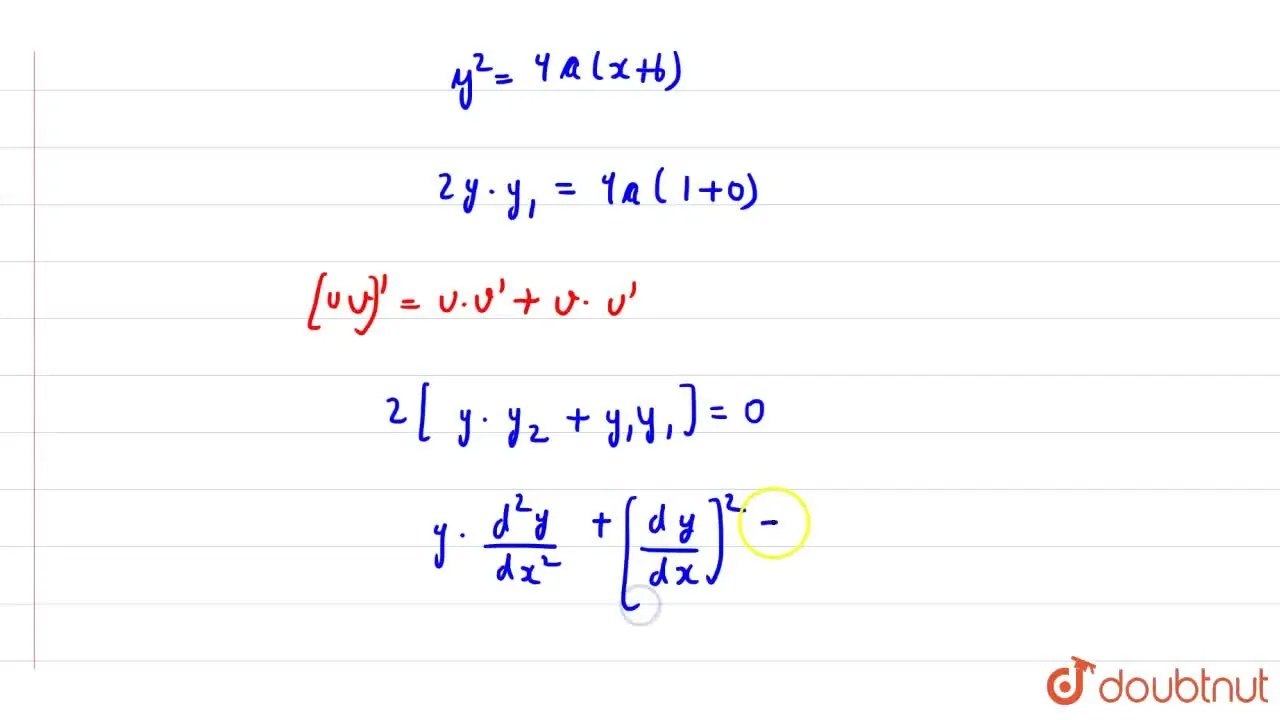 y² = 4a(x+b)
2y · y₁ = 4a(1+0)
[uv]' = u·v' + v·u'
2[y · y₂ + y₁y₁] = 0
y · d²y/dx² + [dy/dx]² =
doubtnut